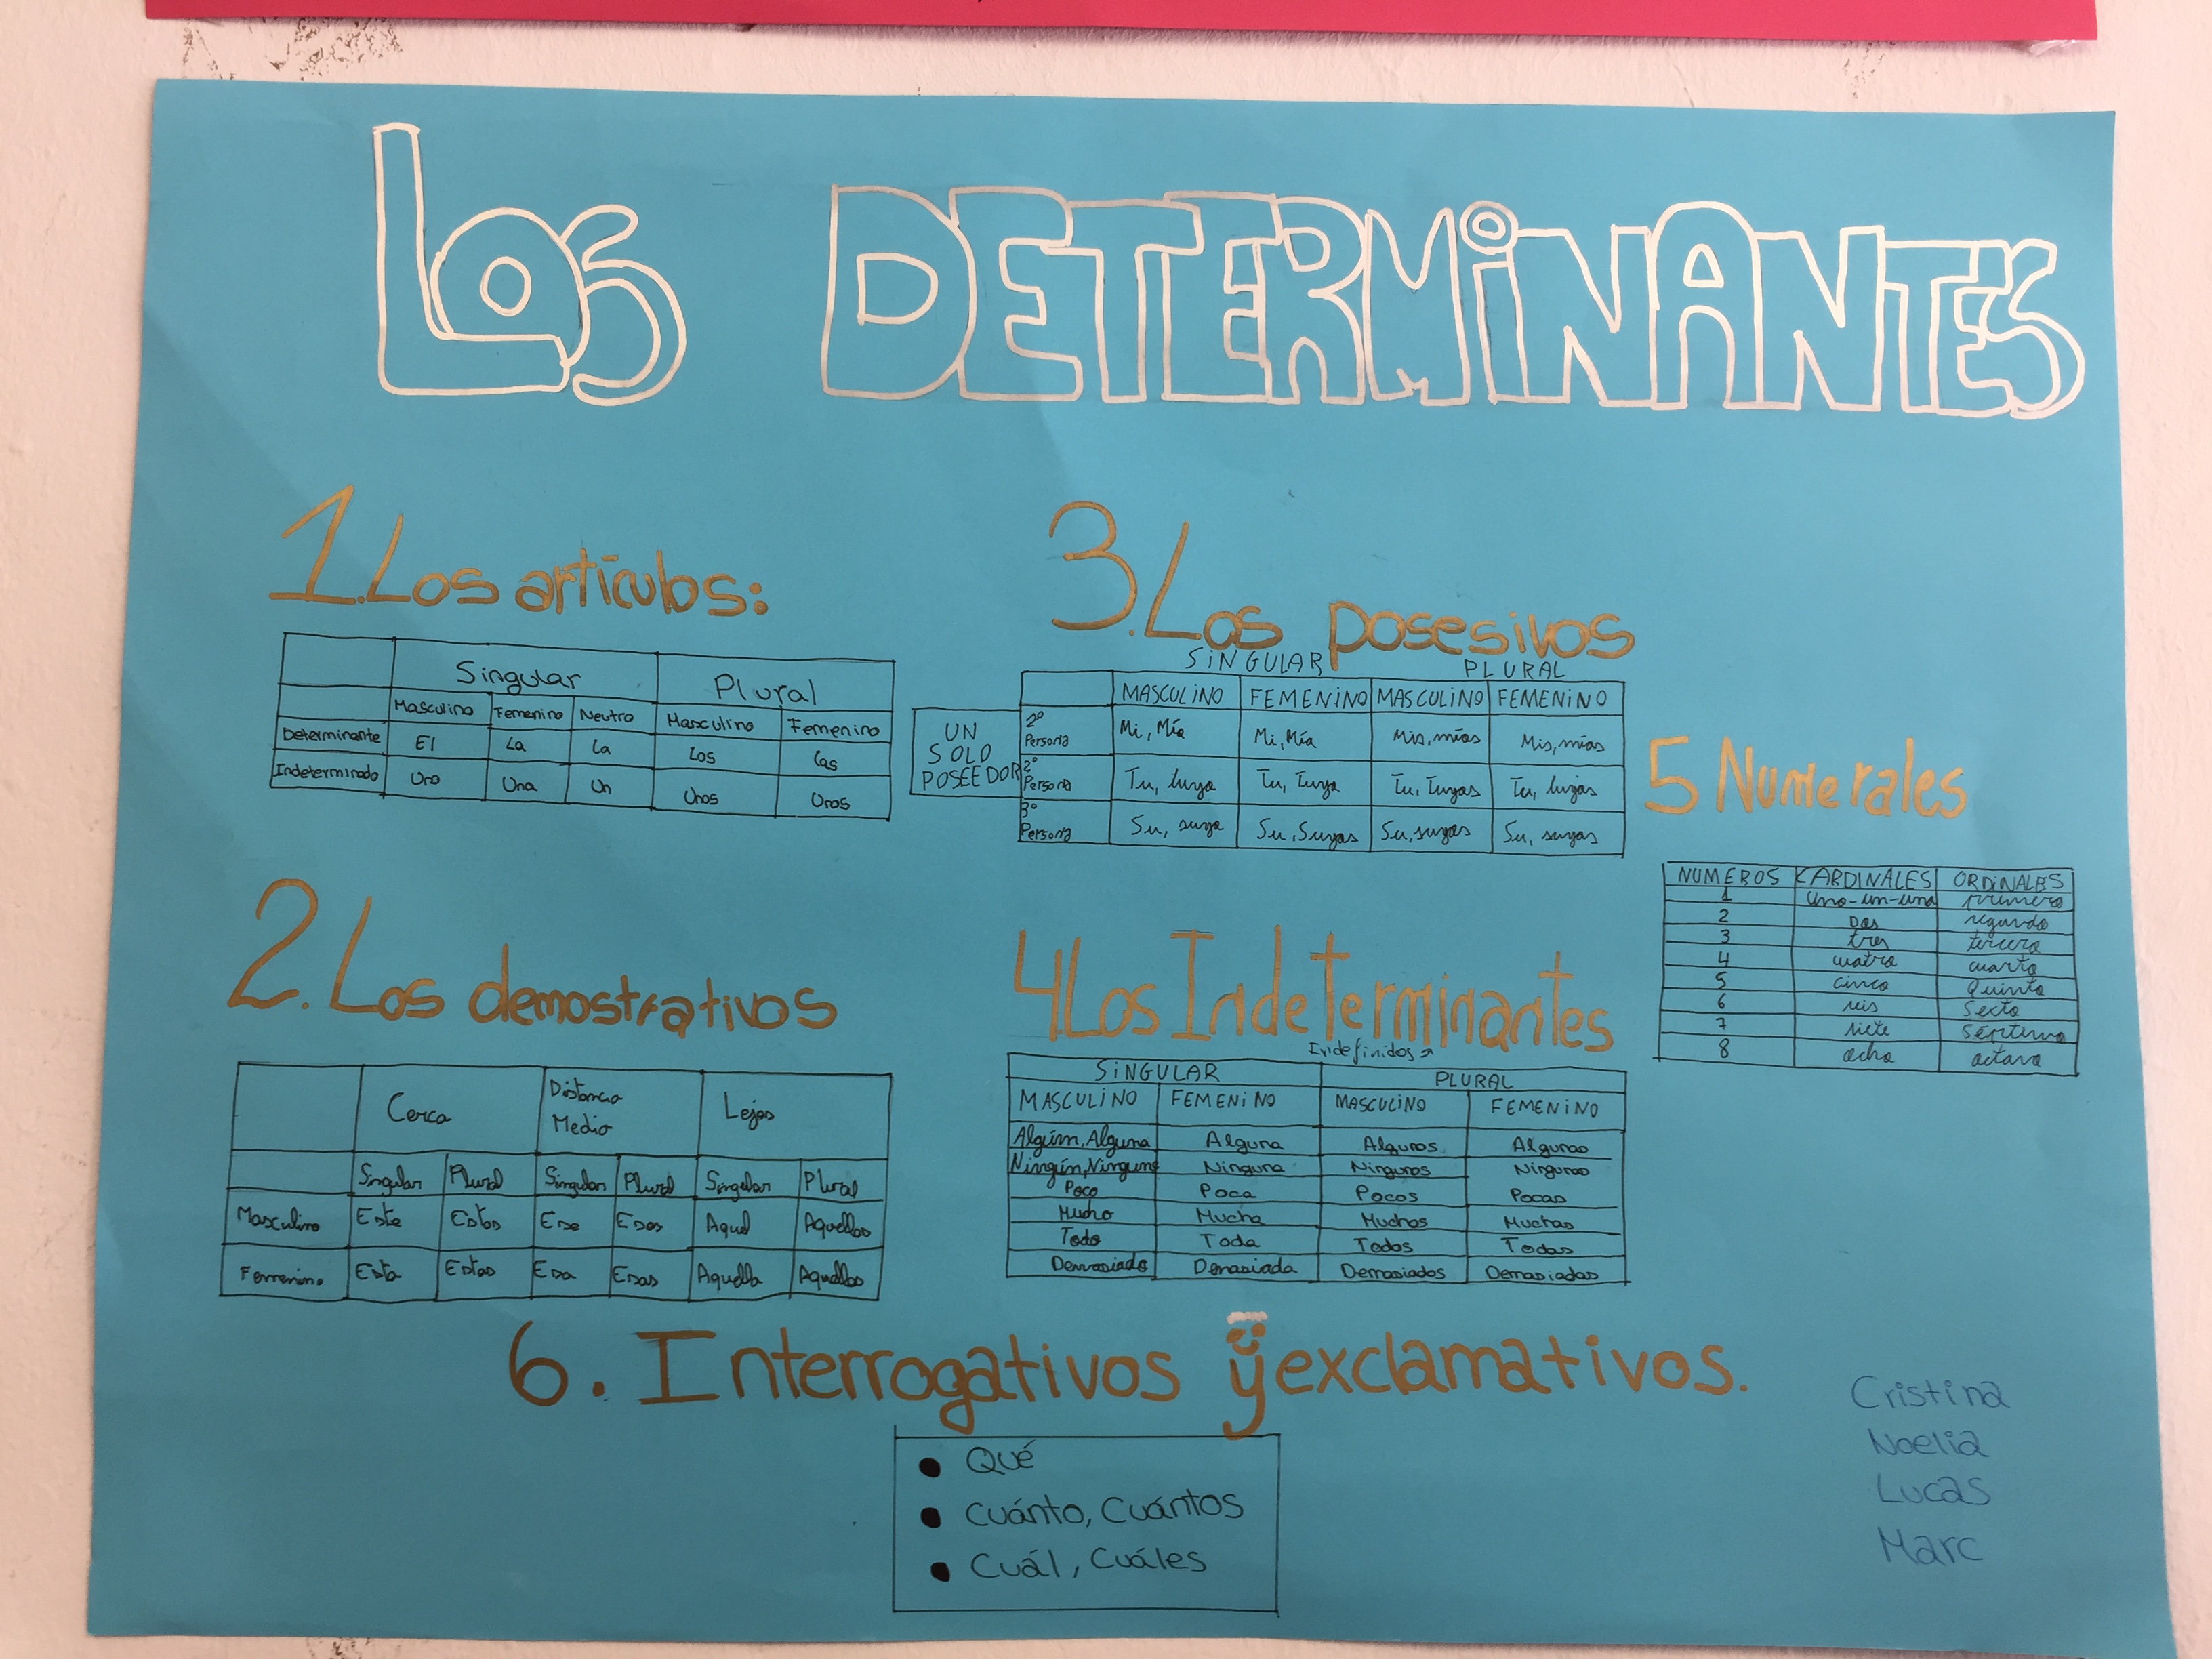 LOS DETERMINANTES
1. Los artículos:
Singular Plural
Masculino Femenino Neutro Masculino Femenino
Determinante El La La Los Las
Indeterminado Uno Una Un Unos Unas
2. Los demostrativos
Cerca Distancia Medio Lejos
Singular Plural Singular Plural Singular Plural
Masculino Este Estos Ese Esos Aquel Aquellos
Femenino Esta Estas Esa Esas Aquella Aquellas
3. Los posesivos
SINGULAR PLURAL
MASCULINO FEMENINO MASCULINO FEMENINO
UN SOLO POSEEDOR
Persona Mi, Mía Mi, Mía Mis, mías Mis, mías
2º Persona Tu, tuya Tu, Tuya Tu, Tuyas Tu, tuyas
3º Persona Su, suya Su, Suyas Su, suyas Su, suyas
4 Los Indeterminantes
Indefinidos
SINGULAR PLURAL
MASCULINO FEMENINO MASCULINO FEMENINO
Algúm, Alguna Alguna Algunos Algunas
Ningún, Ninguno Ninguna Ningunos Ningunas
Poco Poca Pocos Pocas
Mucho Mucha Muchos Muchas
Todo Toda Todos Todas
Demasiado Demasiada Demasiados Demasiadas
5 Numerales
NUMEROS CARDINALES ORDINALES
1 uno-un-una primero
2 Dos segundo
3 tres tercero
4 cuatro cuarto
5 cinco Quinto
6 seis Secto
7 siete Séptimo
8 ocho octavo
6. Interrogativos y exclamativos.
• Qué
• Cuánto, Cuántos
• Cuál, Cuáles
Cristina
Noelia
Lucas
Marc